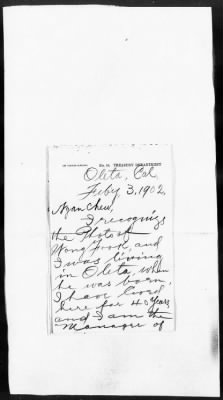 No. 91. TREASURY DEPARTMENT
Oleta, Cal,
Feby 3, 1902,
Ngan Chew,
I recognize
the Photo of
Wong Fook, and
I was living
in Oleta, when
he was born,
I have lived
here for 40 years
and I am the
Manager of